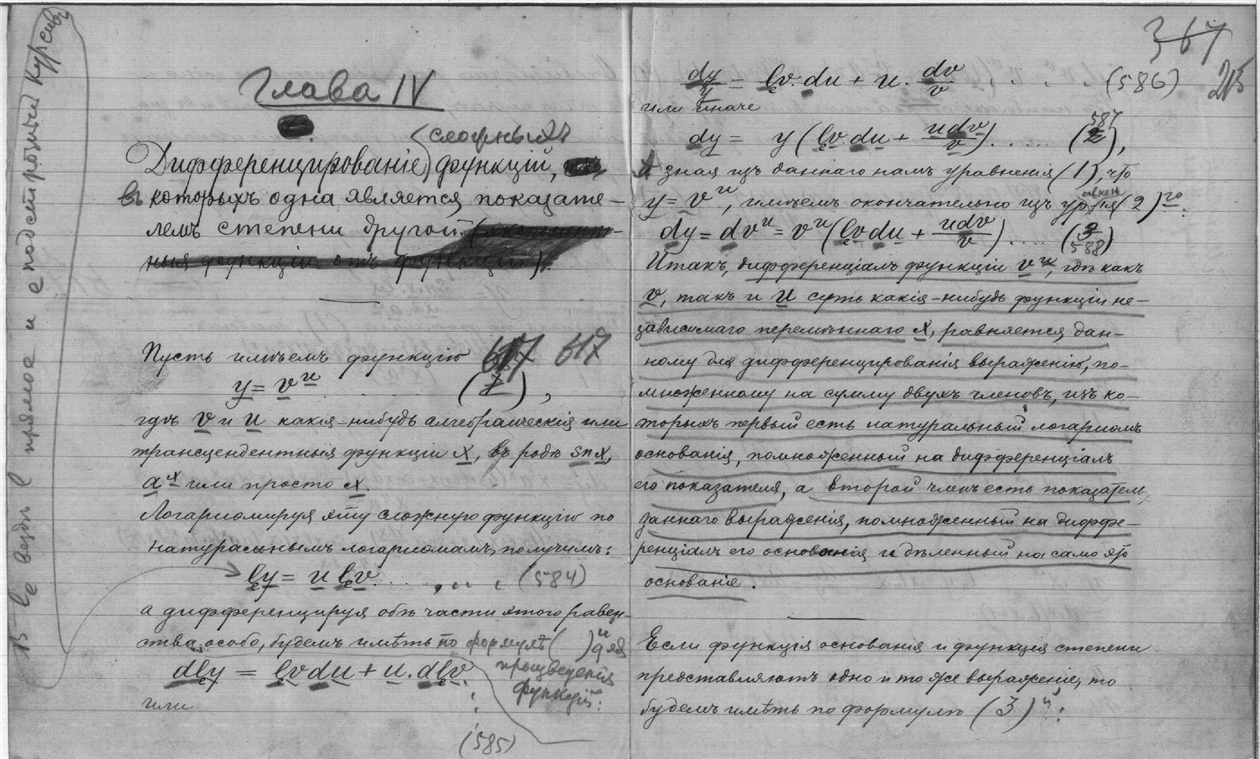 Глава IV
сложныхъ
Дифференцированіе функцій,
въ которыхъ одна является показате-
лемъ степени другой
Пусть имѣемъ функцію 617
y = v^u
гдѣ v и u какія-нибудь алгебраическія или
трансцендентныя функціи x, въ родѣ sn x,
a^x или просто x.
Логариѳмируя эту сложную функцію по
натуральнымъ логариѳмамъ, получимъ:
ly = u lv . . . , . . (584)
а дифференцируя обѣ части этого равен-
ства особо, будемъ имѣть по формулѣ ( )й для
произведенія
функцій:
dly = lv du + u. dlv
или
(585)
367
215
dy/y = lv. du + u. dv/v . . . (586)
или иначе
dy = y (lv du + u dv/v) . . . . . (587),
И зная изъ даннаго намъ уравненія (1), что
y = v^u, имѣемъ окончательно изъ уравненія (2)го:
dy = dv^u = v^u (lv du + u dv/v) . . . . (588)
Итакъ, дифференціалъ функціи v^u, гдѣ какъ
v, такъ и u суть какія-нибудь функціи не-
зависимаго перемѣннаго x, равняется дан-
ному для дифференцированія выраженію, по-
множенному на сумму двухъ членовъ, изъ ко-
торыхъ первый есть натуральный логариѳмъ
основанія, помноженный на дифференціалъ
его показателя, а второй членъ есть показатель
даннаго выраженія, помноженный на диффе-
ренціалъ его основанія и дѣленный на само это
основаніе.
Если функція основанія и функція степени
представляютъ одно и то же выраженіе, то
будемъ имѣть по формулѣ (3)й:
l_e вездѣ l прямое и e подстрочный курсивъ